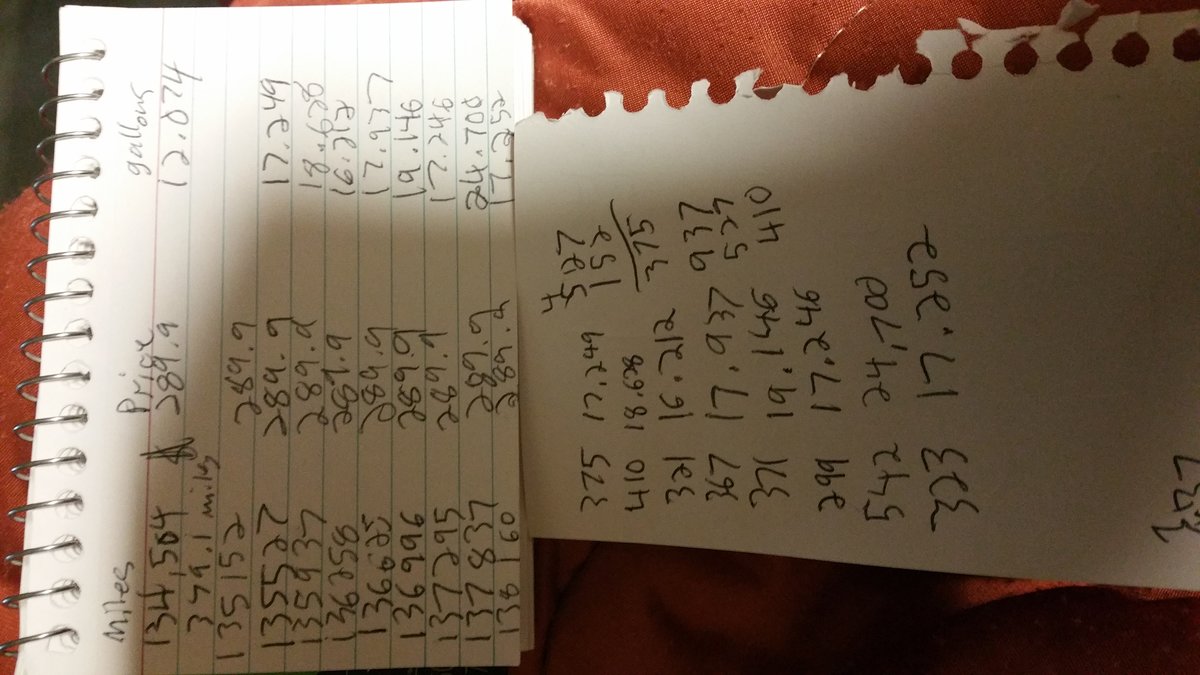 Miles Price gallons
134,504 $ 289.9 12.074
349.1 miles
135152 289.9
135527 289.9 17.249
135937 289.9
136258 289.9 16.212
136625 289.9 17.937
136996 289.9 19.146
137295 289.9 17.246
137837 289.9 24.700
138160 289.9 17.252
375 17.249 152
410 18.68 375
321 16.212
367 17.937 937
371 19.146 527
299 17.246 410
542 24.700
323 17.252
323